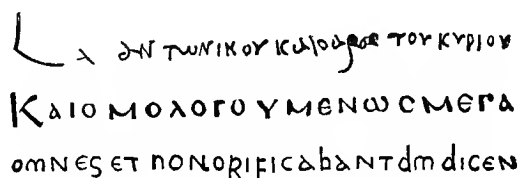 L λ αντωνικου καισαρος του κυριου
ΚαιομολογουμενωϲμεΓα
omnes et honorificabant dm dicen